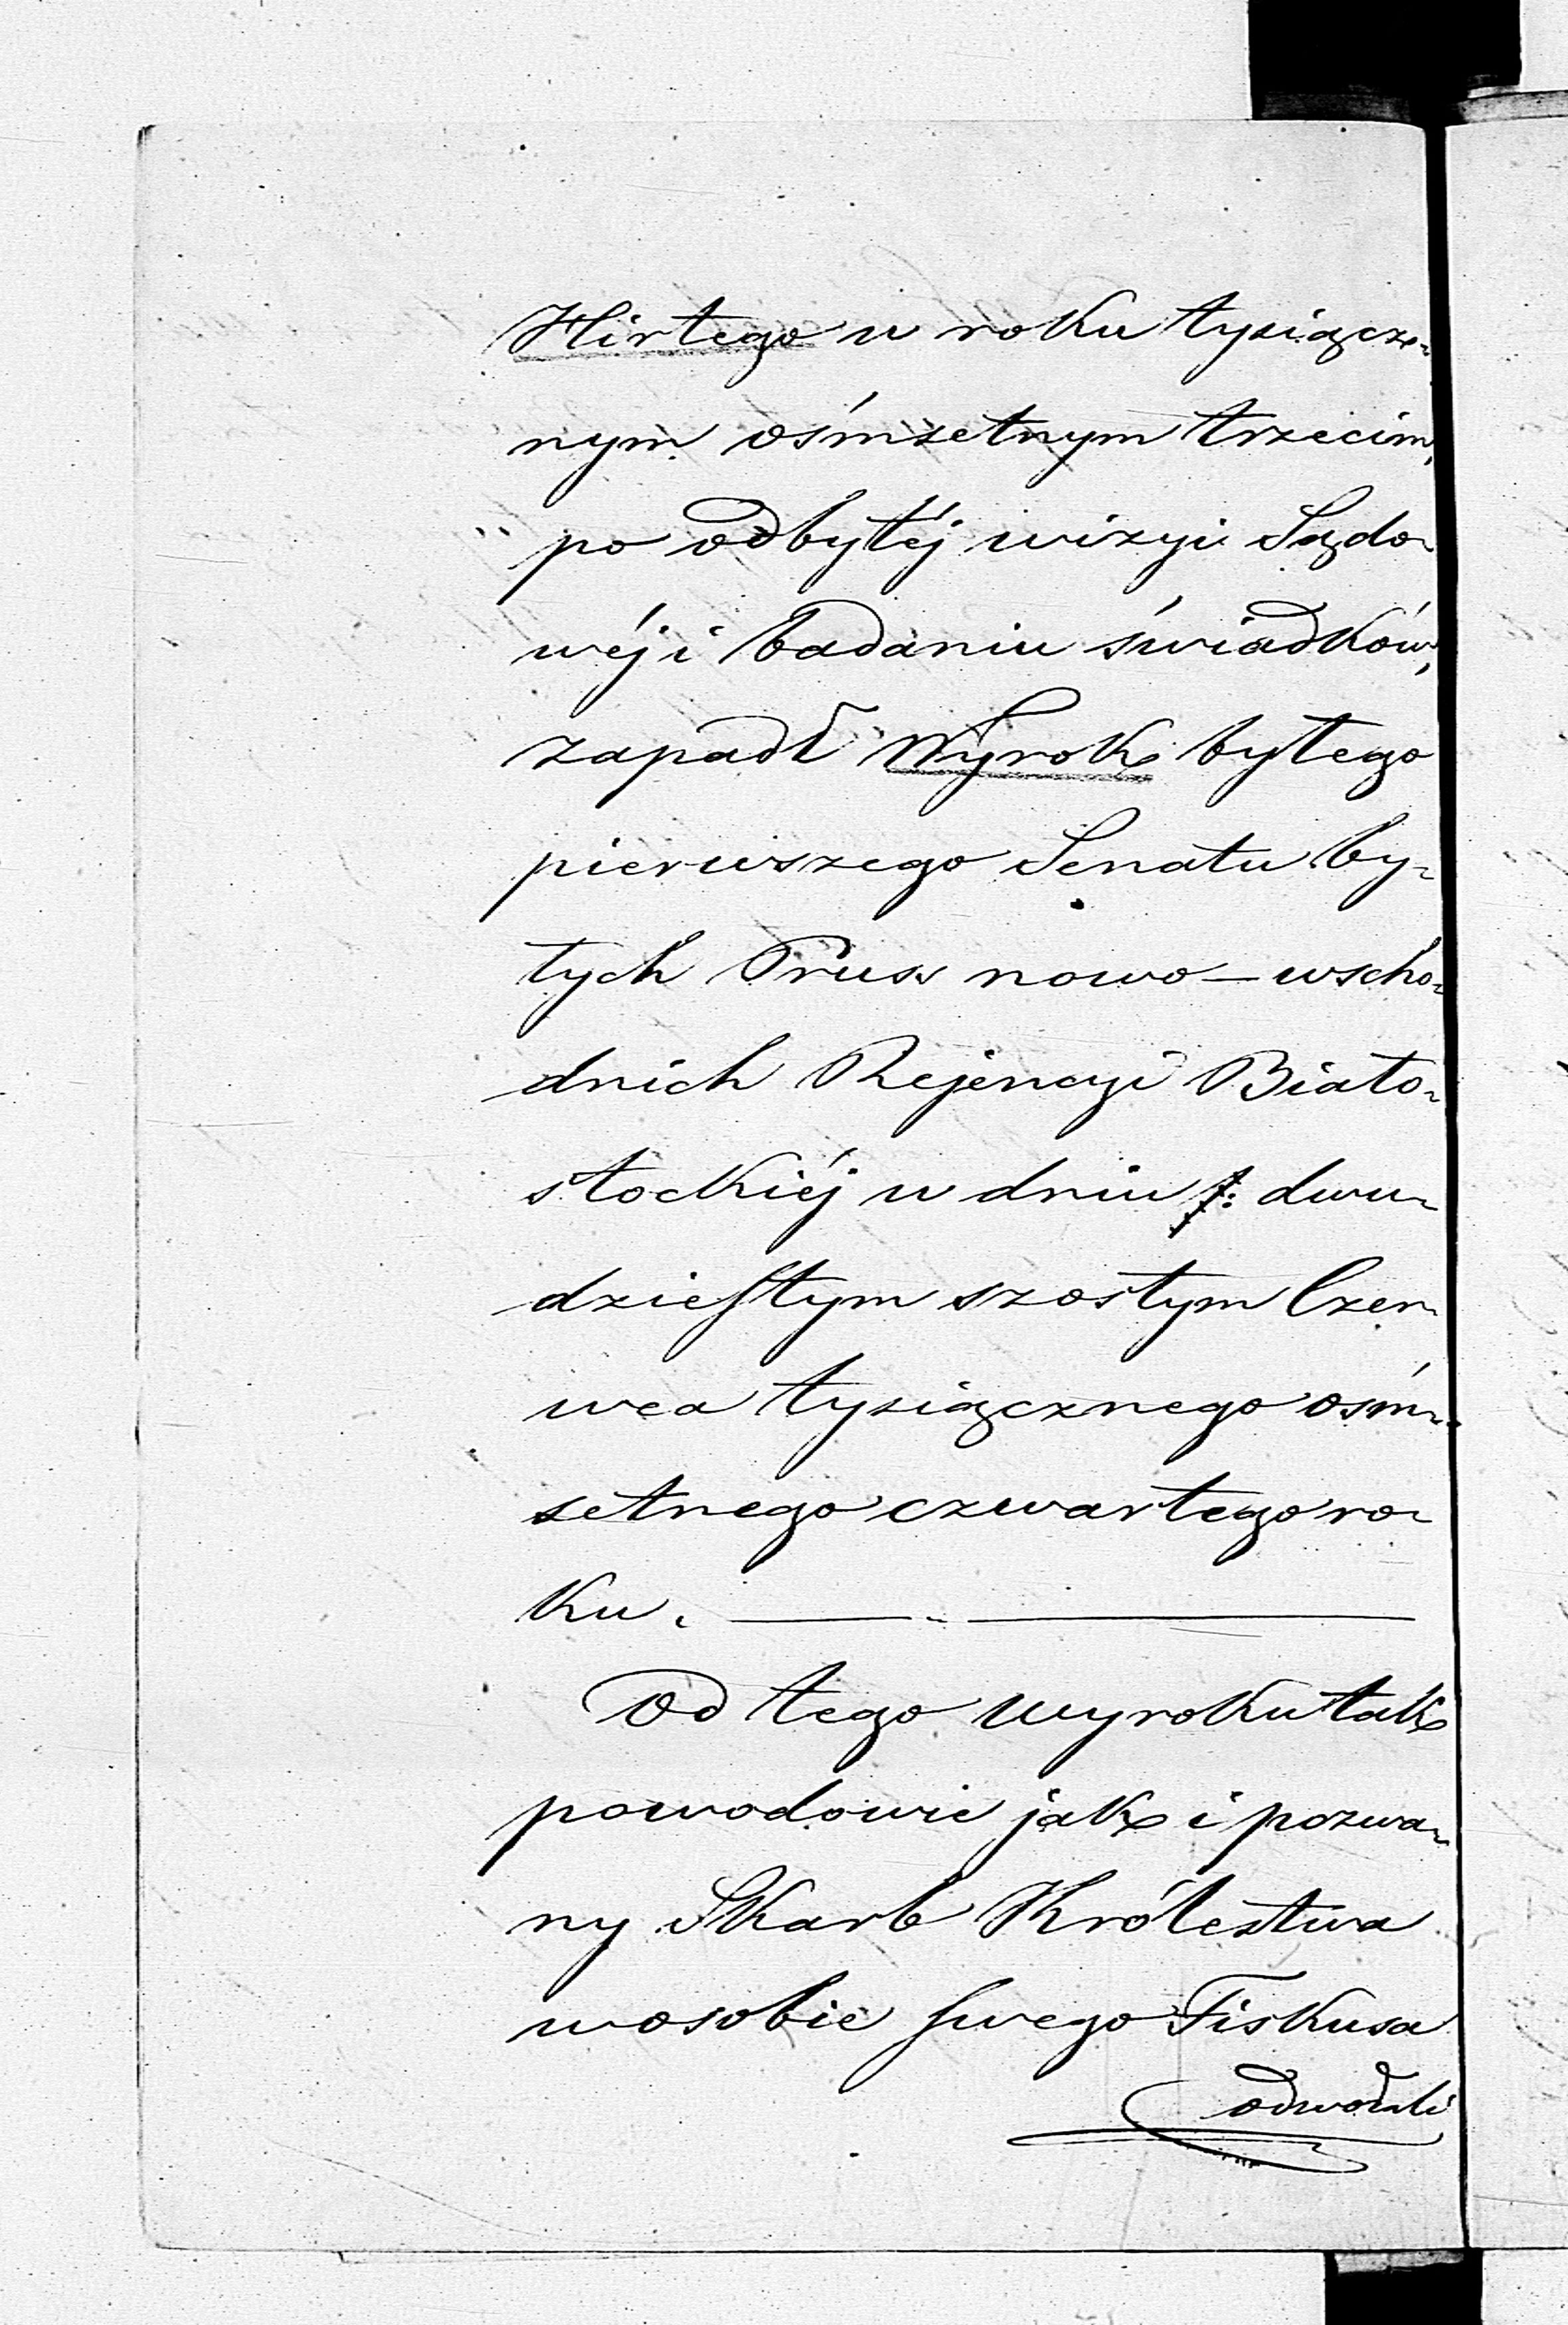 Hirtego w roku tysiącz-
nym ośmsetnym trzecim,
po odbytéj wizyi Sądo-
wéj i badaniu świadków,
zapadł Wyrok byłego
pierwszego Senatu by-
łych Prus nowo-wscho-
dnich Rejencyi Biało-
stockiéj w dniu dwu-
dziestym szostym Czer-
wca tysiącznego ośm-
setnego czwartego ro-
ku.
Od tego wyroku tak
powodowie jak i pozwa-
ny Skarb Królestwa
w osobie swego Fiskusa
odwołali